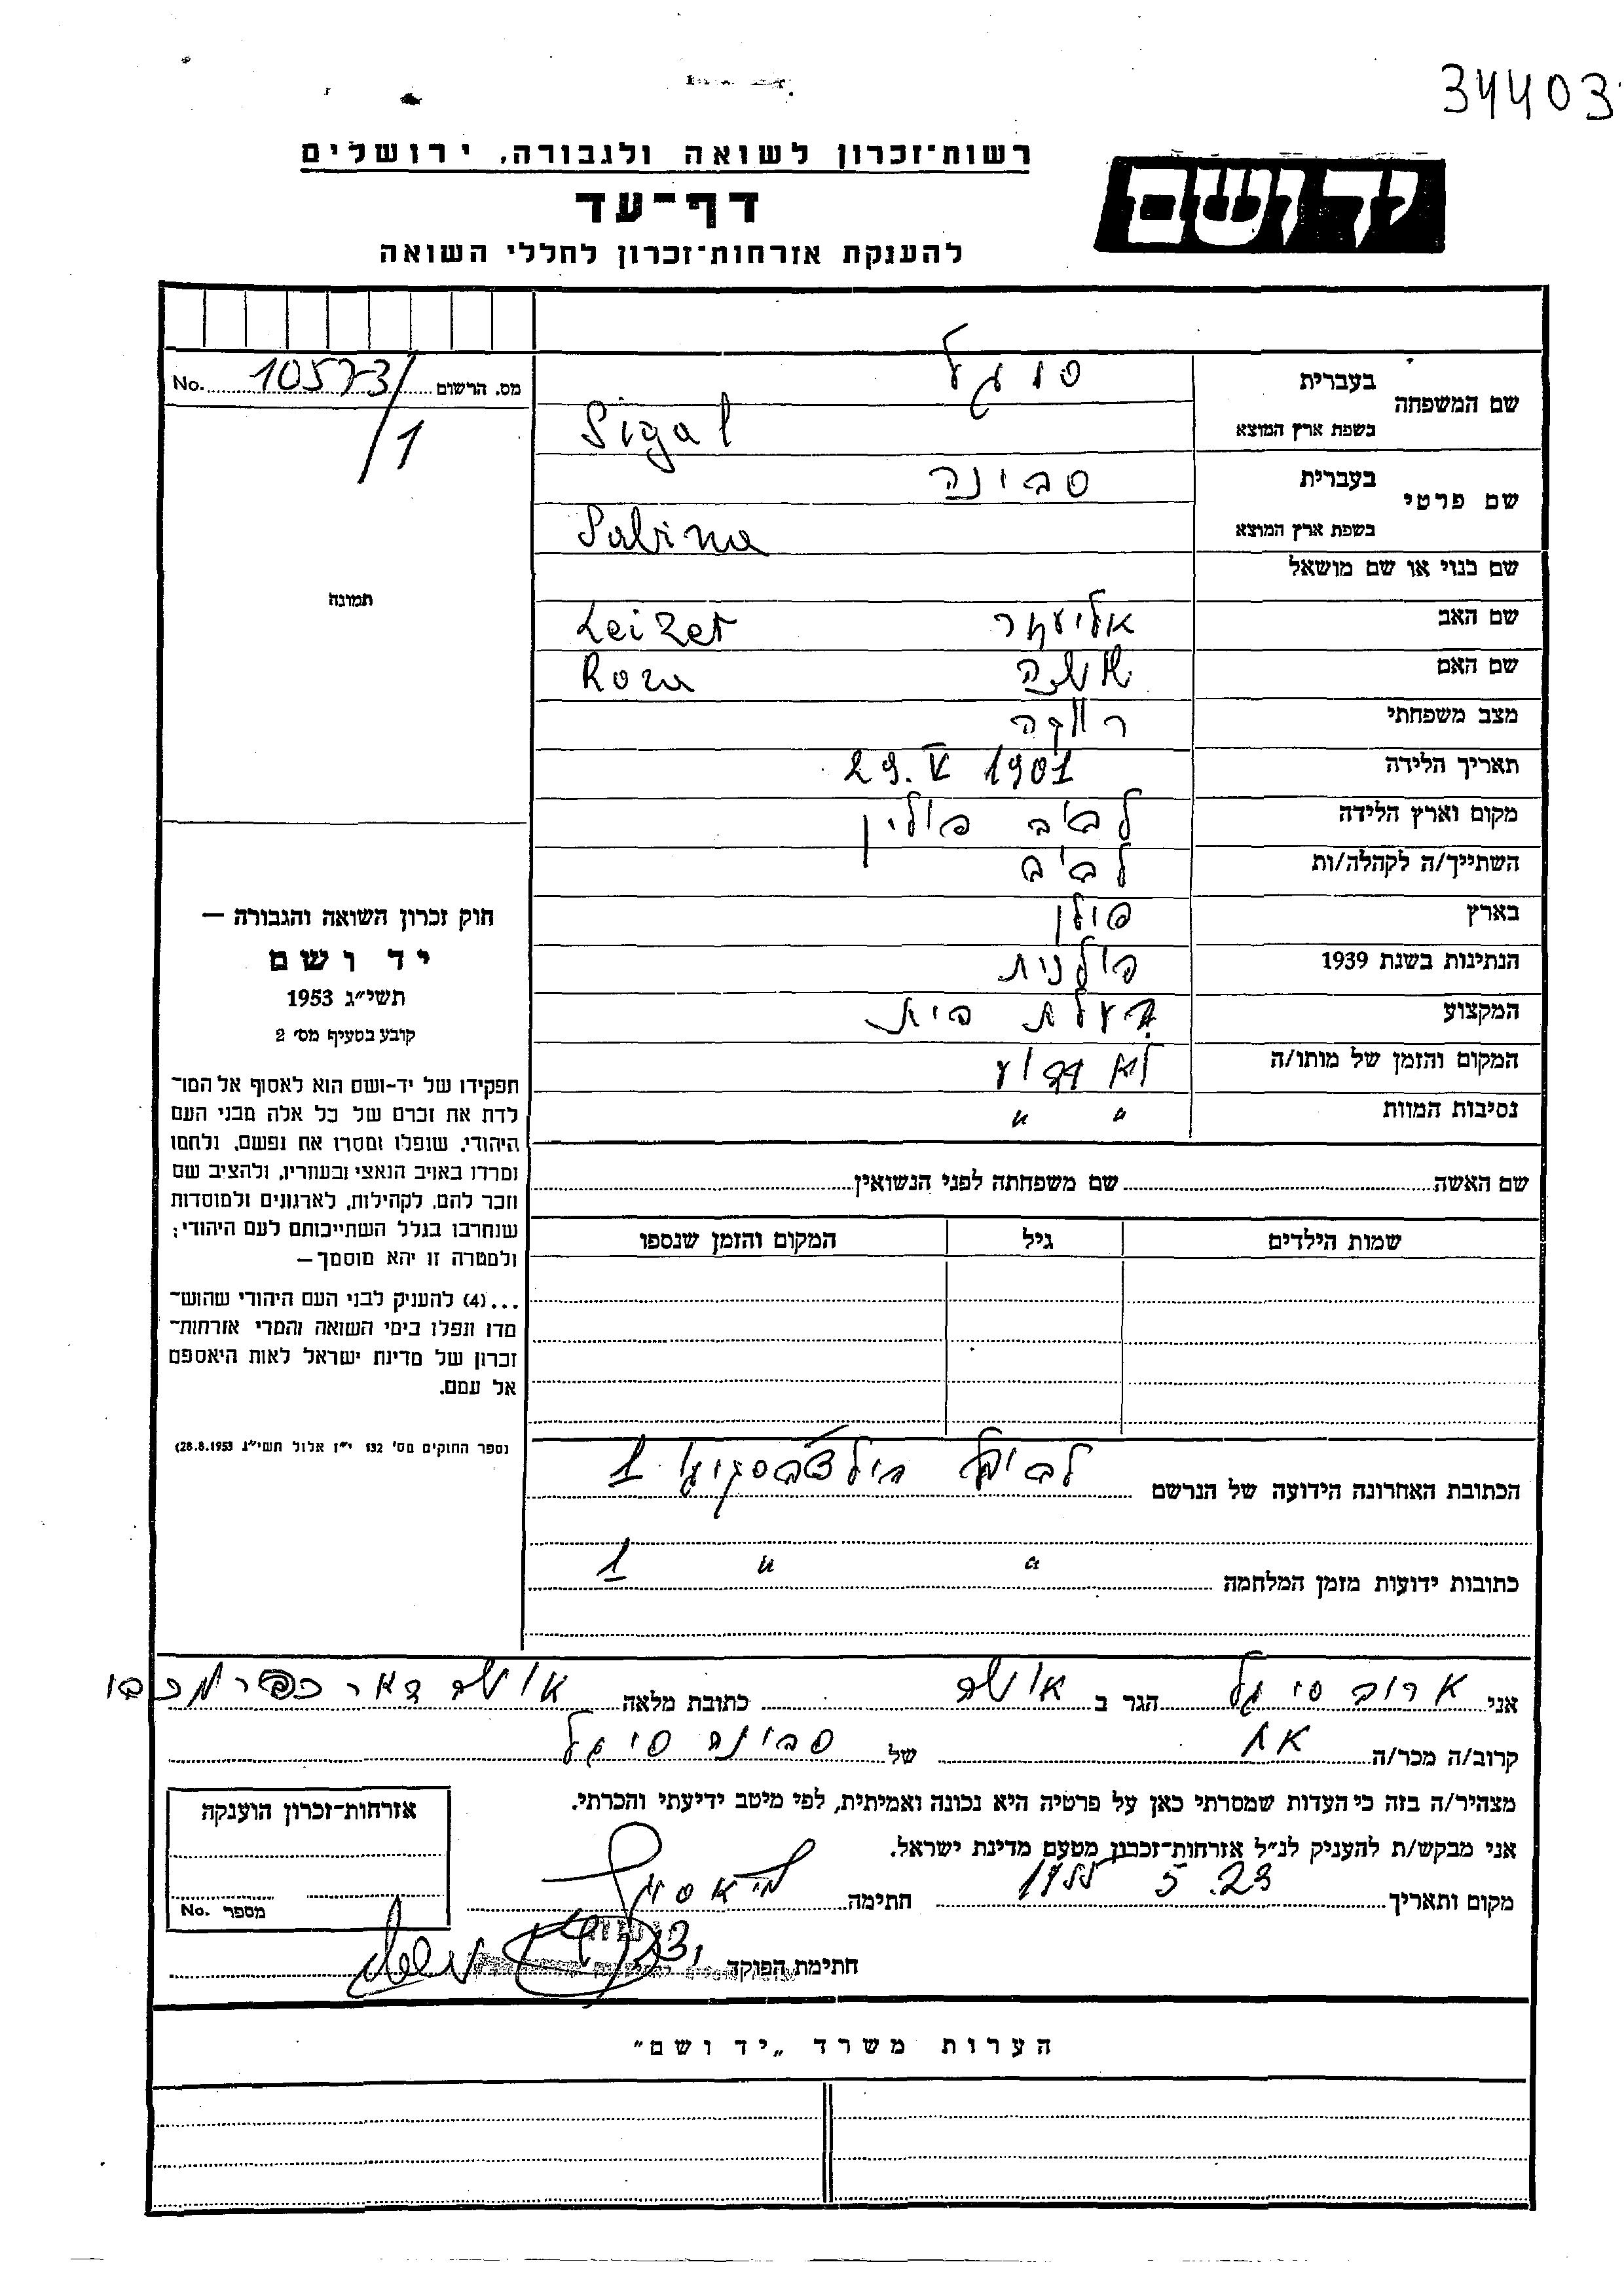 34403
רשות־זכרון לשואה ולגבורה, ירושלים
יד ושם
דף־עד
להענקת אזרחות־זכרון לחללי השואה
מס. הרשום 10573/1 No.
תמונה
שם המשפחה
בעברית סיגל
בשפת ארץ המוצא Sigal
שם פרטי
בעברית סבינה
בשפת ארץ המוצא Sabina
שם כנוי או שם מושאל
שם האב אליעזר Leizer
שם האם Roza
מצב משפחתי רווקה
תאריך הלידה 29. V 1901
מקום וארץ הלידה לבוב פולין
השתייך/ה לקהלה/ות לבוב
בארץ פולין
הנתינות בשנת 1939 פולנית
המקצוע בעלת בית
המקום והזמן של מותו/ה לא ידוע
נסיבות המוות " "
שם האשה שם משפחתה לפני הנשואין
שמות הילדים גיל המקום והזמן שנספו
חוק זכרון השואה והגבורה —
יד ושם
תשי״ג 1953
קובע בסעיף מס׳ 2
תפקידו של יד-ושם הוא לאסוף אל המו־
לדת את זכרם של כל אלה מבני העם
היהודי, שנפלו ומסרו את נפשם, נלחמו
ומרדו באויב הנאצי ובעוזריו, ולהציב שם
וזכר להם, לקהילות, לארגונים ולמוסדות
שנחרבו בגלל השתייכותם לעם היהודי;
ולמטרה זו יהא מוסמך —
...(4) להעניק לבני העם היהודי שהוש־
מדו ונפלו בימי השואה והמרי אזרחות־
זכרון של מדינת ישראל לאות היאספם
אל עמם.
(ספר החוקים מס׳ 132 י״ז אלול תשי״ג 28.8.1953)
הכתובת האחרונה הידועה של הנרשם 1
כתובות ידועות מזמן המלחמה " " 1
אני סיגל הגר ב כתובת מלאה דאר כפר
קרוב/ה מכר/ה אח של סבינה סיגל
מצהיר/ה בזה כי העדות שמסרתי כאן על פרטיה היא נכונה ואמיתית, לפי מיטב ידיעתי והכרתי.
אני מבקש/ת להעניק לנ״ל אזרחות־זכרון מטעם מדינת ישראל.
מקום ותאריך 23. 5 חתימה
אזרחות־זכרון הוענקה
מספר No.
חתימת הפוקד
הערות משרד „יד ושם”